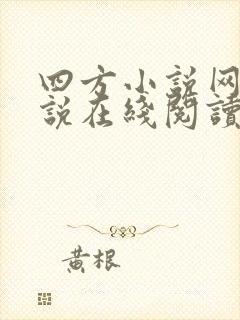 四方小说网
説在綫閱讀
黄根